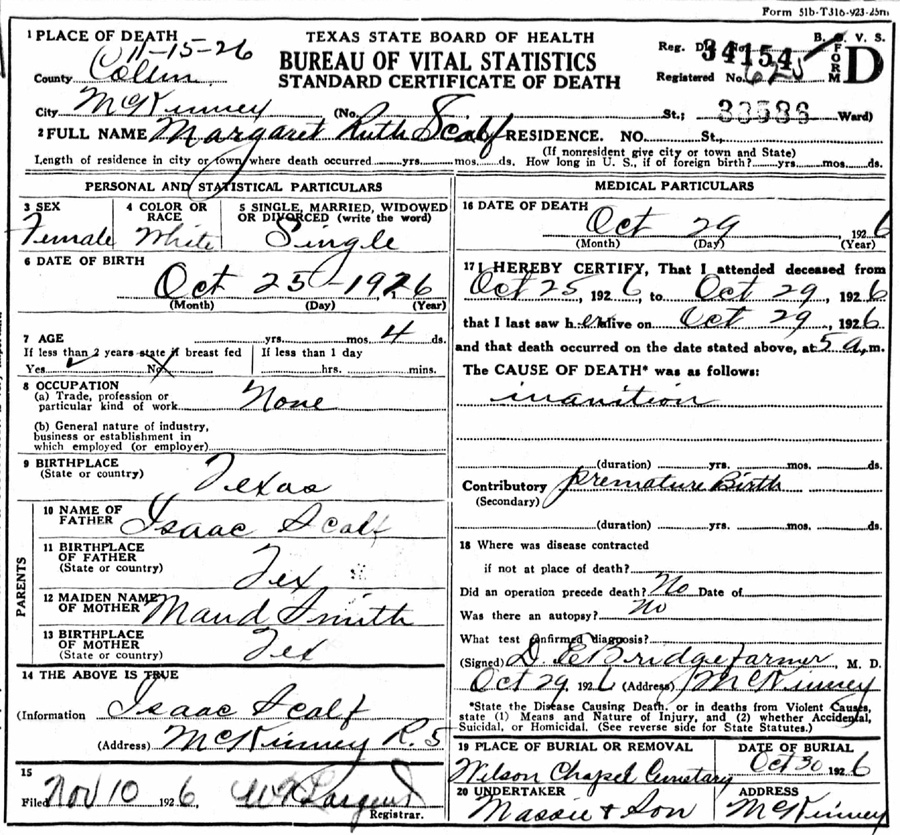 Form 51b-T316-923-25m
1 PLACE OF DEATH
TEXAS STATE BOARD OF HEALTH
B. V. S.
11-15-26
BUREAU OF VITAL STATISTICS
Reg. Dis. No. 34154
FORM D
County Collin
STANDARD CERTIFICATE OF DEATH
Registered No. 625
City McKinney (No. St.; 33536 Ward)
2 FULL NAME Margaret Ruth Scalf RESIDENCE. NO. St.,
(If nonresident give city or town and State)
Length of residence in city or town where death occurred yrs. mos. ds. How long in U. S., if of foreign birth? yrs. mos. ds.
PERSONAL AND STATISTICAL PARTICULARS
3 SEX
Female
4 COLOR OR RACE
White
5 SINGLE, MARRIED, WIDOWED
OR DIVORCED (write the word)
Single
6 DATE OF BIRTH
Oct 25 - 1926
(Month) (Day) (Year)
7 AGE yrs. mos. 4 ds.
If less than 2 years state if breast fed
Yes No
If less than 1 day
hrs. mins.
8 OCCUPATION
(a) Trade, profession or
particular kind of work None
(b) General nature of industry,
business or establishment in
which employed (or employer)
9 BIRTHPLACE
(State or country) Texas
PARENTS
10 NAME OF
FATHER Isaac Scalf
11 BIRTHPLACE
OF FATHER
(State or country) Tex
12 MAIDEN NAME
OF MOTHER Maud Smith
13 BIRTHPLACE
OF MOTHER
(State or country) Tex
14 THE ABOVE IS TRUE
(Information Isaac Scalf
(Address) McKinney R. 5
15
Filed Nov 10 1926, Largent
Registrar.
MEDICAL PARTICULARS
16 DATE OF DEATH
Oct 29 1926
(Month) (Day) (Year)
17 I HEREBY CERTIFY, That I attended deceased from
Oct 25, 1926, to Oct 29, 1926
that I last saw h er alive on Oct 29, 1926
and that death occurred on the date stated above, at 5 a. m.
The CAUSE OF DEATH* was as follows:
inanition
(duration) yrs. mos. ds.
Contributory Premature Birth
(Secondary)
(duration) yrs. mos. ds.
18 Where was disease contracted
if not at place of death?
Did an operation precede death? No Date of
Was there an autopsy? No
What test confirmed diagnosis?
(Signed) D E Bridgefarmer, M. D.
Oct 29, 1926 (Address) McKinney
*State the Disease Causing Death, or in deaths from Violent Causes,
state (1) Means and Nature of Injury, and (2) whether Accidental,
Suicidal, or Homicidal. (See reverse side for State Statutes.)
19 PLACE OF BURIAL OR REMOVAL
Wilson Chapel Cemetary
DATE OF BURIAL
Oct 30 1926
20 UNDERTAKER
Massie & Son
ADDRESS
McKinney